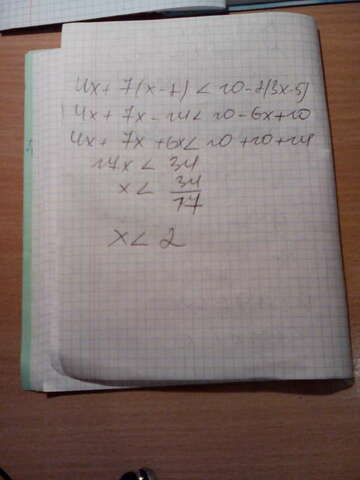 4x + 7(x - 2) < 10 - 2(3x - 5)
4x + 7x - 14 < 10 - 6x + 10
4x + 7x + 6x < 10 + 10 + 14
17x < 34
x < 34/17
x < 2